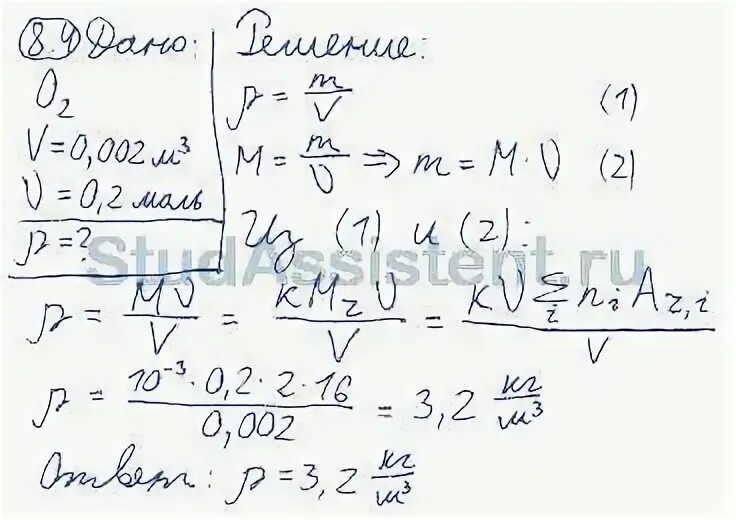 8.4 Дано:
O₂
V = 0,002 м³
ν = 0,2 маль
ρ = ?
Решение:
ρ = m/V (1)
M = m/ν ⇒ m = M·ν (2)
Из (1) и (2):
StudAssistent.ru
ρ = Mν/V = kMᵣν/V = kν Σᵢ nᵢ Aᵣ,ᵢ / V
ρ = 10⁻³·0,2·2·16 / 0,002 = 3,2 кг/м³
Ответ: ρ = 3,2 кг/м³